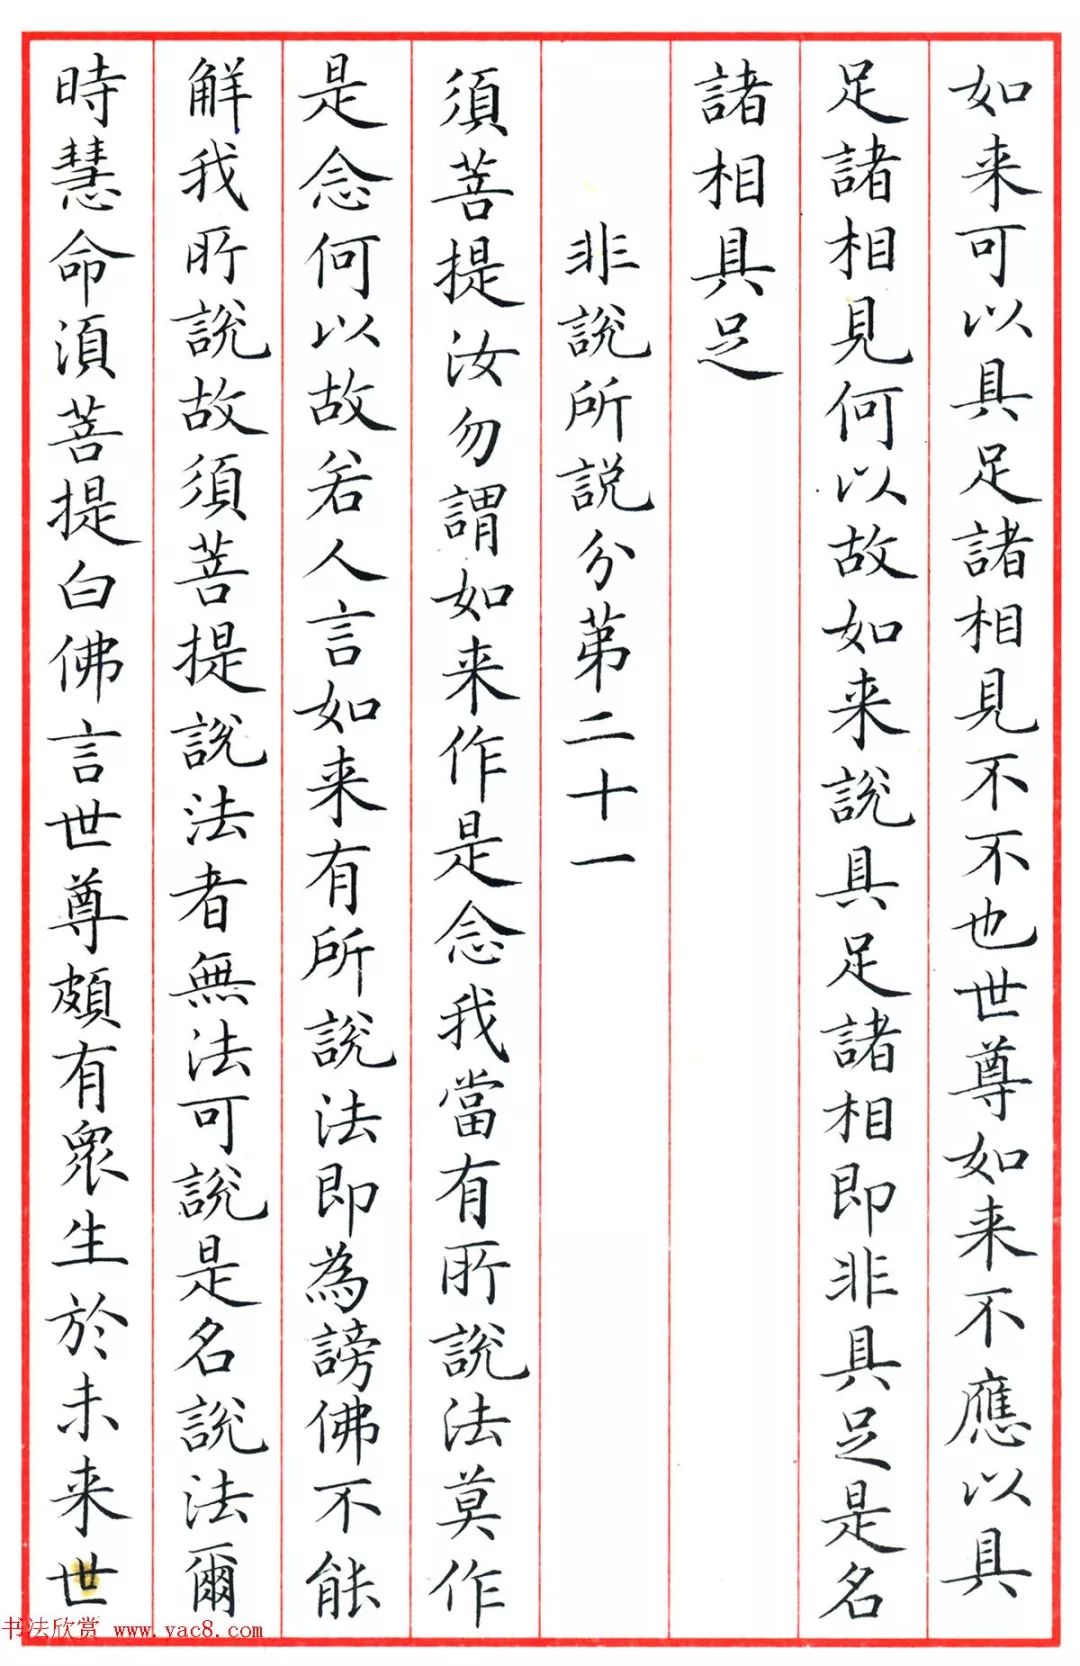 如来可以具足諸相見不不也世尊如来不應以具
足諸相見何以故如来說具足諸相即非具足是名
諸相具足
非說所説分第二十一
須菩提汝勿謂如来作是念我當有所說法莫作
是念何以故若人言如来有所說法即為謗佛不能
解我所說故須菩提說法者無法可說是名說法爾
時慧命須菩提白佛言世尊頗有眾生於未来世
书法欣赏 www.yac8.com